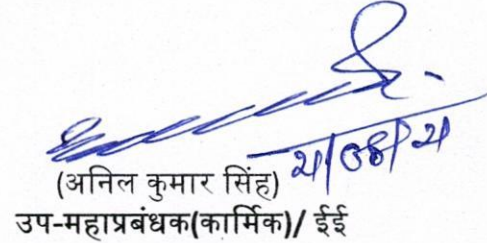 21/08/21
(अनिल कुमार सिंह)
उप-महाप्रबंधक(कार्मिक)/ ईई